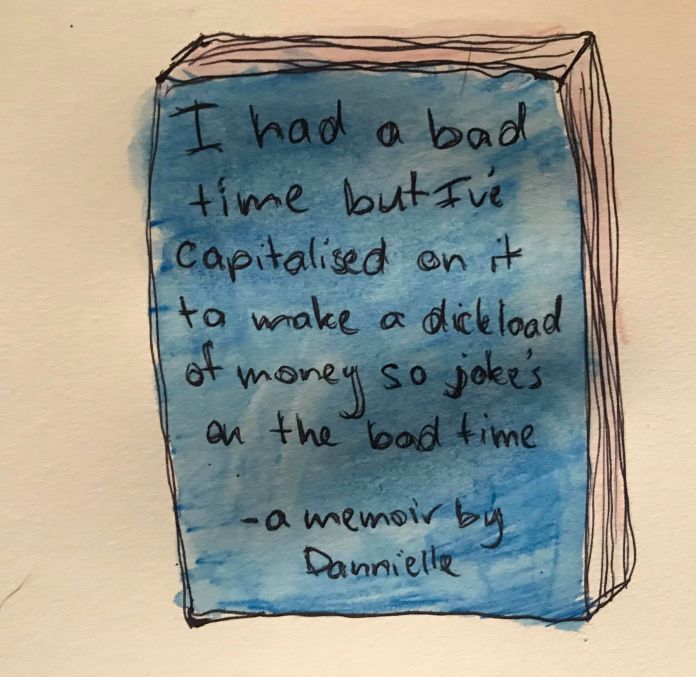 I had a bad
time but I've
capitalised on it
to make a dickload
of money so joke's
on the bad time
-a memoir by
Dannielle